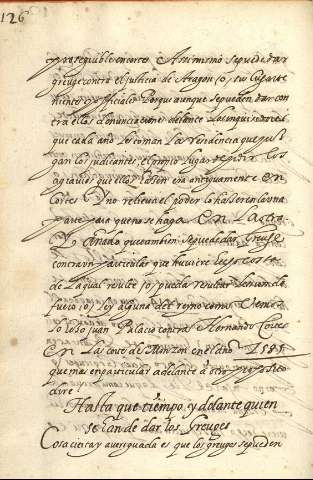 126
proseguible en cortes Assimismo se puede dar
greuge contra el Justicia de Aragon, o, su Lugarte
niente o officiales Porque aunque se pueden dar con
tra ellos denunciaciones delante Los inquisidores
que cada año Les toman La residencia que juz
gan los judicantes, el propio lugar de pedir los
agravios que ellos hacen era antiguamente en
cortes Y no releva el poder lo hasser en la una
parte para que no se haga en La otra
Yo Añado que tambien se puede dar Greuge
contra un particular que huviere hecho cosa
de La qual resulte, o, pueda resultar Lesion de
fuero, o, Ley alguna del reyno como
lo hizo Juan Palacio contra Hernando Cortes
en Las cortes de Monzon en el año 1585
que mas en particular adelante a otro proposito
dire
Hasta que tiempo, y delante quien
se han de dar los Greuges
Cosa cierta y averiguada es que los greuges se pueden